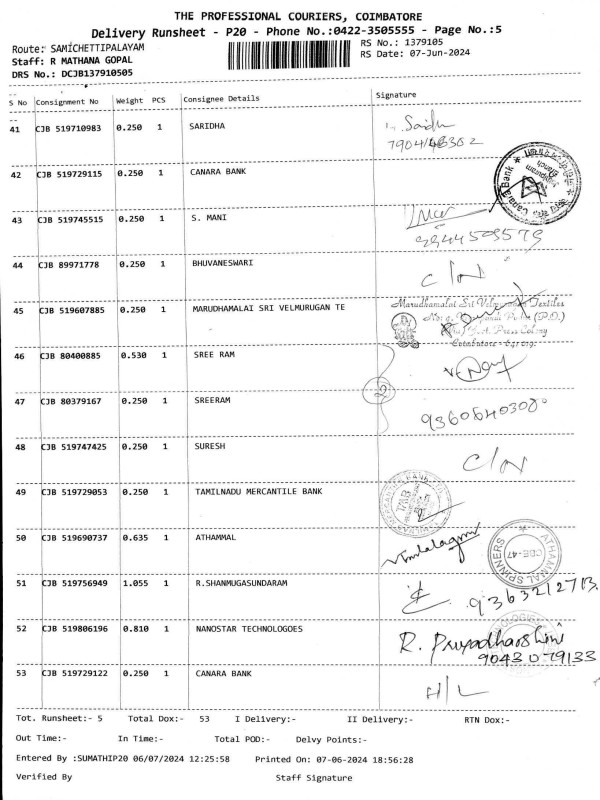 THE PROFESSIONAL COURIERS, COIMBATORE
Delivery Runsheet - P20 - Phone No.:0422-3505555 - Page No.:5
Route: SAMICHETTIPALAYAM
RS No.: 1379105
Staff: R MATHANA GOPAL
RS Date: 07-Jun-2024
DRS No.: DCJB137910505
S No Consignment No Weight PCS Consignee Details Signature
41 CJB 519710983 0.250 1 SARIDHA
42 CJB 519729115 0.250 1 CANARA BANK
Canara Bank
43 CJB 519745515 0.250 1 S. MANI
44 CJB 89971778 0.250 1 BHUVANESWARI
C/N
45 CJB 519607885 0.250 1 MARUDHAMALAI SRI VELMURUGAN TE
Marudhamalai Sri Textiles
(P.O.)
Press Colony
Coimbatore - 641 019.
46 CJB 80400885 0.530 1 SREE RAM
2
47 CJB 80379167 0.250 1 SREERAM
48 CJB 519747425 0.250 1 SURESH
C/N
49 CJB 519729053 0.250 1 TAMILNADU MERCANTILE BANK
50 CJB 519690737 0.635 1 ATHAMMAL
ATHAMMAL SPINNERS
CBE-47
51 CJB 519756949 1.055 1 R.SHANMUGASUNDARAM
9363212713.
52 CJB 519806196 0.810 1 NANOSTAR TECHNOLOGOES
R. Priyadharshini
90430 79133
53 CJB 519729122 0.250 1 CANARA BANK
H/L
Tot. Runsheet:- 5 Total Dox:- 53 I Delivery:- II Delivery:- RTN Dox:-
Out Time:- In Time:- Total POD:- Delvy Points:-
Entered By :SUMATHIP20 06/07/2024 12:25:58 Printed On: 07-06-2024 18:56:28
Verified By Staff Signature